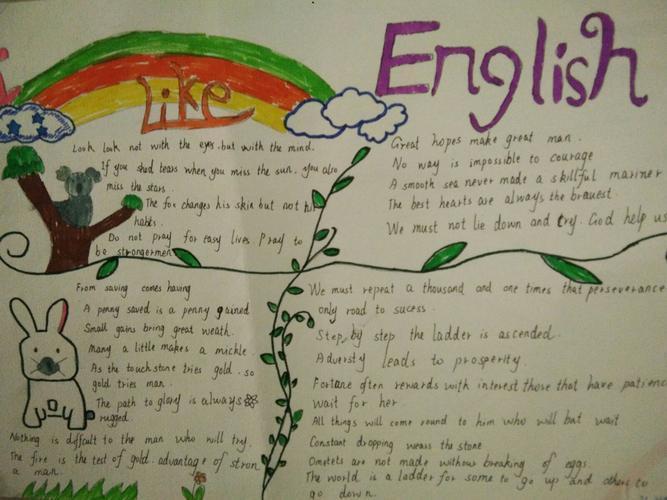 i Like English
Look look not with the eyes, but with the mind.
If you shed tears when you miss the sun, you also
miss the stars.
The fox changes his skin but not his
habits.
Do not pray for easy lives. Pray to
be stronger men
Great hopes make great man.
No way is impossible to courage
A smooth sea never made a skillful mariner
The best hearts are always the bravest.
We must not lie down and cry. God help us
From saving comes having
A penny saved is a penny gained
Small gains bring great weath.
many a little makes a mickle.
As the touchstone tries gold. so
gold tries man.
The path to glory is always
rugged.
Nothing is diffcult to the man who will try.
The fire is the test of gold. advantage of stron
a man.
We must repeat a thousand and one times that perseverance
only road to sucess.
Step by step the ladder is ascended.
Adversty leads to prosperity.
Fortane often rewards with interest those that have patienc
wait for her.
All things will come round to him who will but wait
Constant dropping wears the stone
Omelets are not made without breaking of eggs.
The world is a ladder for some to go up and others to
go down.